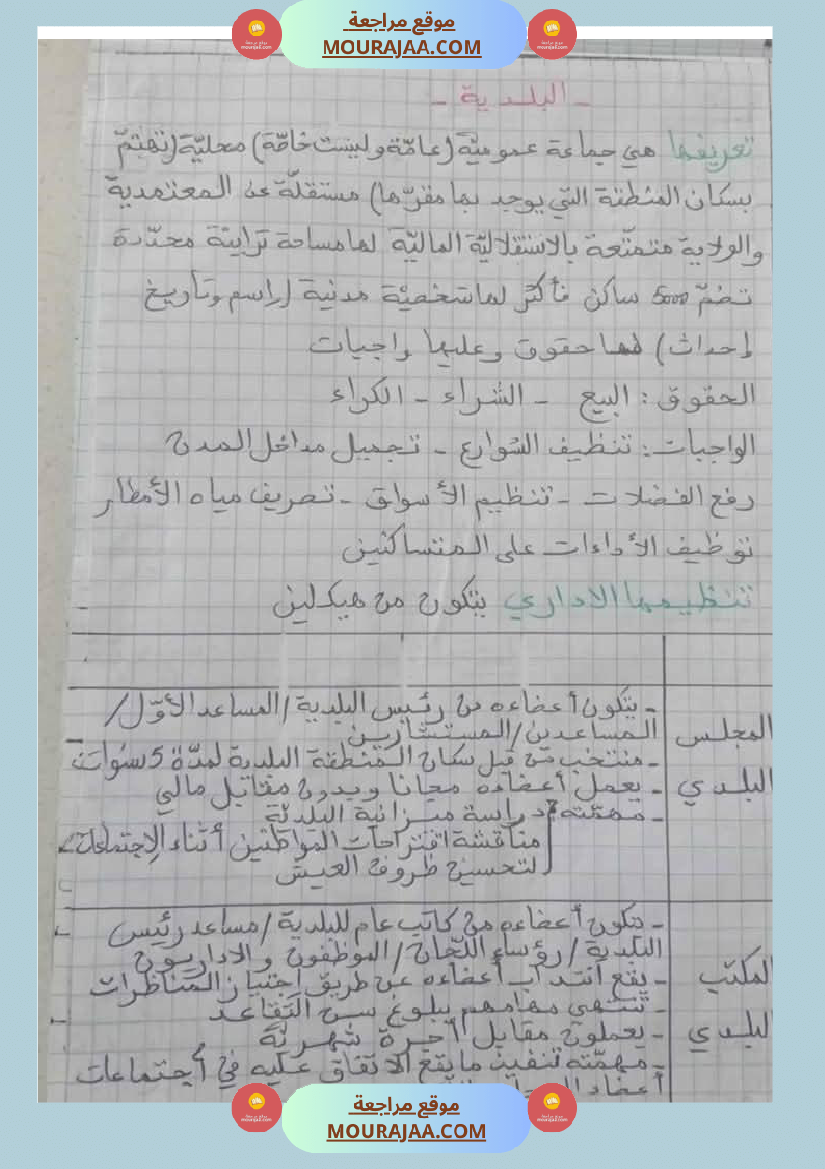 موقع مراجعة
MOURAJAA.COM
- البلدية -
تعريفها هي جماعة عمومية (عامّة وليست خاصّة) محليّة (تهتمّ
بسكان المنطقة التي يوجد بها مقرّها) مستقلّة عن المعتمدية
والولاية متمتّعة بالاستقلاليّة الماليّة لها مساحة ترابيّة محدّدة
تضمّ 5000 ساكن فأكثر لها شخصيّة مدنية (إسم وتاريخ
إحداث) لها حقوق وعليها واجبات
الحقوق : البيع - الشراء - الكراء
الواجبات : تنظيف الشوارع - تجميل مداخل المدن
رفع الفضلات - تنظيم الأسواق - تصريف مياه الأمطار
توظيف الأداءات على المتساكنين
تنظيمها الاداري يتكون من هيكلين
المجلس البلدي
- يتكون أعضاءه من رئيس البلدية / المساعد الأوّل /
المساعدين / المستشارين
- منتخب من قبل سكان المنطقة البلدية لمدّة 5 سنوات
- يعمل أعضاءه مجانا وبدون مقابل مالي
- مهمّته دراسة ميزانية البلديّة
مناقشة اقتراحات المواطنين أثناء الإجتماعات
لتحسين ظروف العيش
المكتب البلدي
- يتكون أعضاءه من كاتب عام للبلدية / مساعد رئيس
البلدية / رؤساء اللّجان / الموظفون والاداريون
- يقع انتداب أعضاءه عن طريق إجتياز المناظرات
- تنتهي مهامهم ببلوغ سن التقاعد
- يعملون مقابل أجرة شهريّة
- مهمّته تنفيذ ما يقع الاتفاق عليه في إجتماعات
أعضاء
موقع مراجعة
MOURAJAA.COM